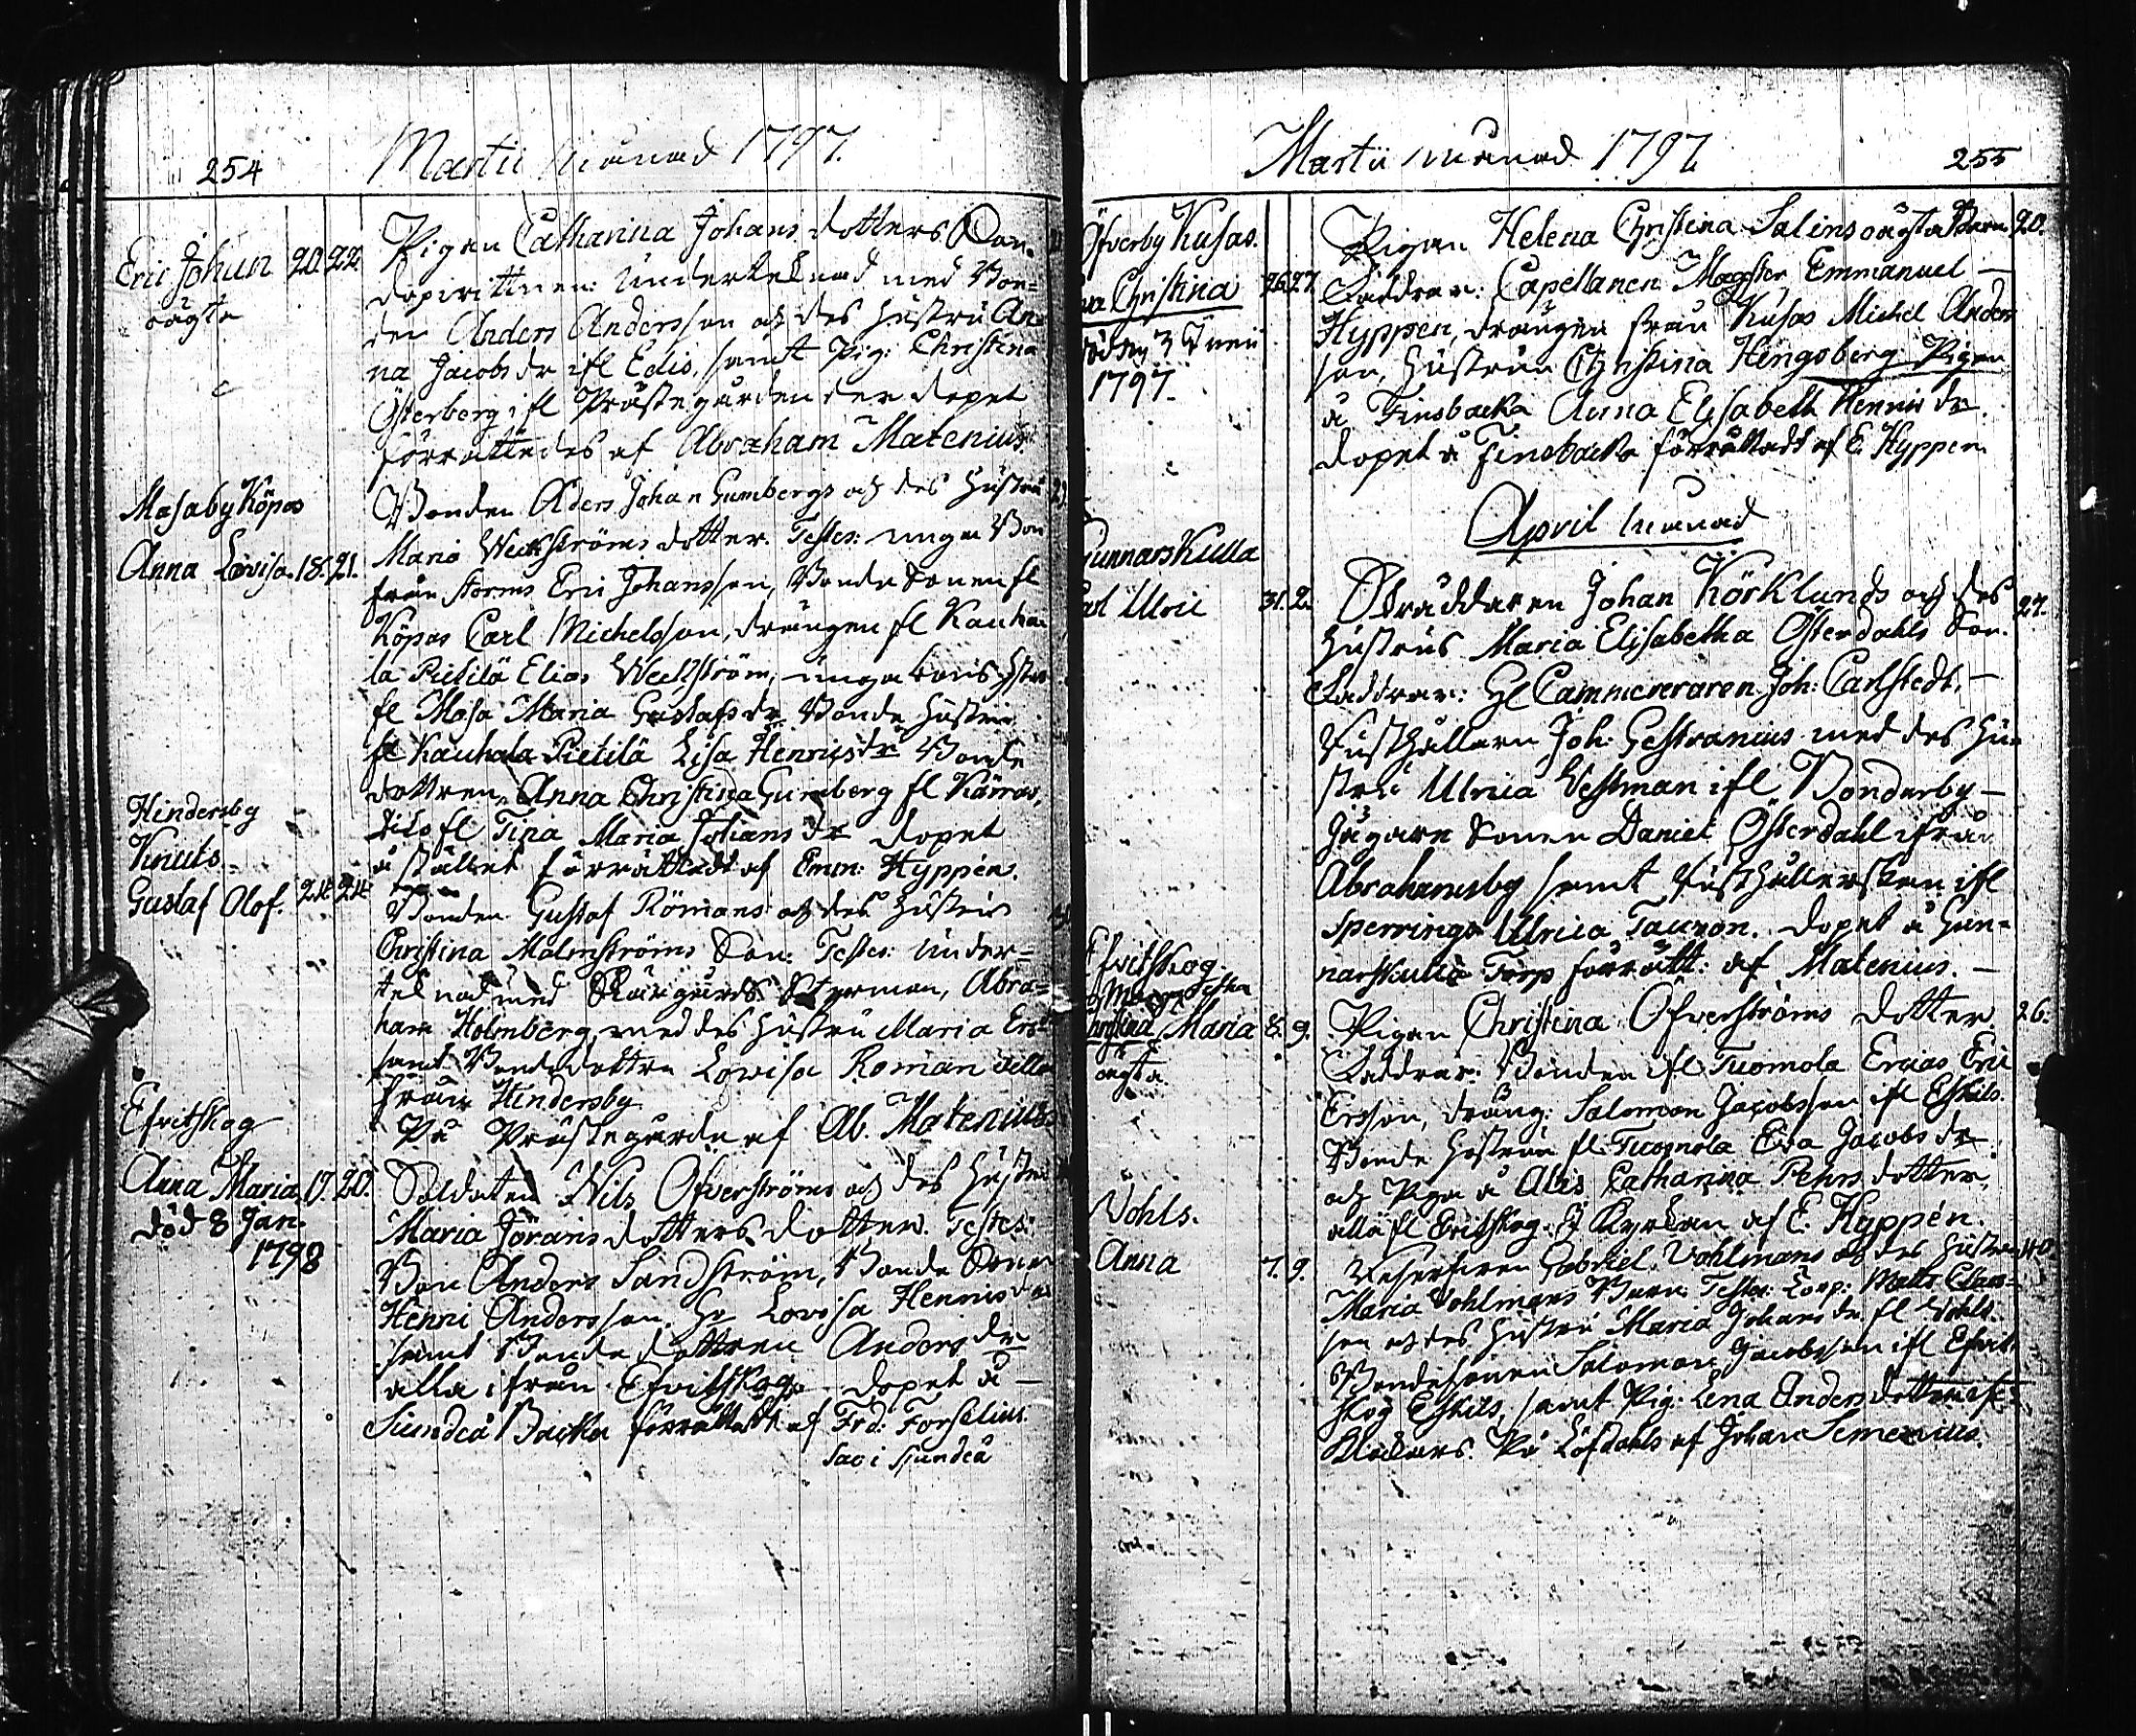 254 Martii Månad 1797.
Eric Johan 20. 22. Pigan Catharina Johans dotters Son.
oägta Dopvittnen: Underteknad med Bon=
den Anders Andersson och des Hustru An=
na Jacobs dr ifl Edis, samt Pig: Christina
Österberg ifl Prästegården der dopet
förrättades af Abraham Matenius.
Masaby Köpas Bonden Anders Johan Gumbergs och des Hustru
Anna Lovisa. 18. 21. Maria Weckströms dotter. Testes: unga Bon
från Storms Eric Johansson, Bonde Sonen fl
Köpas Carl Michelsson, drängen fl Kauha
la Pietilä Elias Weckström, unga
fl Masa Maria Gustafs dr Bonde Hustru
fl Kauhala Pietilä Lisa Henrics dr Bonde
dottren Anna Christina Gumberg fl Kärras,
dito fl Tina Maria Johans dr dopet
å stället förrättadt af Emm: Hyppén.
Hindersby
Knuts.
Gustaf Olof. 24. 24. Bonden Gustaf Römans och des Hustrus
Christina Malmströms Son: Testes: Under=
teknad med Styrman, Abra=
ham Holmberg med des Hustru Maria
samt Bondedottren Lovisa Roman alla
från Hindersby
På Prästegården af Ab. Matenius
Efvitskog
Anna Maria 17. 20. Soldaten Nils Öfverströms och des Hustru
död 8 Jan. Maria Jörans dotters dotter. Testes:
1798 Bon Anders Sandström, Bonde Sonen
Henric Andersson, H Lovisa Henrics dr
samt Bonde dottren Anders dr
alla ifrån Efvitskog. dopet å
Siundeå Backa förrättadt af Frd: Forselius.
Sac i Sjundeå
Martii Månad 1797 255
Öfverby Kusas. Pigan Helena Christina Salins oägta Barn. 20.
Christina 26. 27. Faddrar: Capellanen Magister Emmanuel
Hyppen, drängen från Kusas Michel Anders
son, Hustrun Christina Hengsberg Pigan
1797. å Finsbacka Anna Elisabeth Henrics dr.
dopet å Finsbacka förrättadt af E. Hyppén
April Månad
Gunnarskulla
Carl Ulric 31. 2. Skräddaren Johan Körklunds och des 27.
Hustrus Maria Elisabetha Österdahls Son.
Faddrar: H Cammereraren Joh: Carlstedt,
Rusthållarn Joh: Gestranius med des Hu=
stru Ulrica Vestman ifl Bonderby
Jägare Sonen Daniel Österdahl ifrån
Abrahamsby samt Rusthållerskan ifl
Sperrings Ulrica Tauron. Dopet å Gun=
narskulla Torp förrätt: af Matenius.
Efvitskog
Christina Maria 8. 9. Pigan Christina Öfverströms dotter 26.
oägta. Faddrar: Bonden ifl Tuomola Ericas Eric
Ersson, dräng: Salomon Jacobsson ifl Eskils.
Bonde Hustrun fl Tuomola Eva Jacobs dr
och Piga å Alis Catharina Pehrs dotter,
alla fl Evitskog. I Kyrkan af E. Hyppén.
Vohls.
Anna 7. 9. Gabriel Vohlmans och des Hustru 40.
Maria Vohlmans Barn. Testes: Corp: Matts Claes=
son och des Hustru Maria Johans dr fl Vohls.
Bondesonen Salomon Jacobsson ifl Efvit
skog Eskils, samt Pig: Lena Anders dotter ifl
På Löfdahls af Johan Simelius.